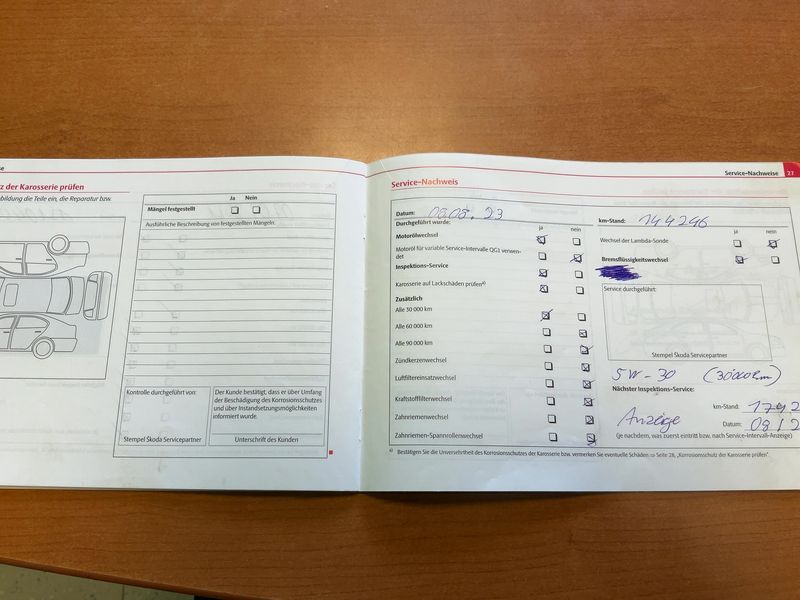 z der Karosserie prüfen
bildung die Teile ein, die Reparatur bzw.
Ja Nein
Mängel festgestellt
Ausführliche Beschreibung von festgestellten Mängeln:
Kontrolle durchgeführt von:
Stempel Škoda Servicepartner
Der Kunde bestätigt, dass er über Umfang
der Beschädigung des Korrosionsschutzes
und über Instandsetzungsmöglichkeiten
informiert wurde.
Unterschrift des Kunden
Service-Nachweise 27
Service-Nachweis
Datum: 08.08.23
km-Stand: 144246
Durchgeführt wurde:
ja nein
Motorölwechsel
Motoröl für variable Service-Intervalle QG1 verwen-
det
Inspektions-Service
Karosserie auf Lackschäden prüfen a)
Zusätzlich
Alle 30 000 km
Alle 60 000 km
Alle 90 000 km
Zündkerzenwechsel
Luftfiltereinsatzwechsel
Kraftstofffilterwechsel
Zahnriemenwechsel
Zahnriemen-Spannrollenwechsel
ja nein
Wechsel der Lambda-Sonde
Bremsflüssigkeitswechsel
Service durchgeführt:
Stempel Škoda Servicepartner
5W-30 (30000km)
Nächster Inspektions-Service:
km-Stand: 1742
Anzeige
Datum: 08/2
(je nachdem, was zuerst eintritt bzw. nach Service-Intervall-Anzeige)
a) Bestätigen Sie die Unversehrtheit des Korrosionsschutzes der Karosserie bzw. vermerken Sie eventuelle Schäden ⇒ Seite 28, „Korrosionsschutz der Karosserie prüfen".